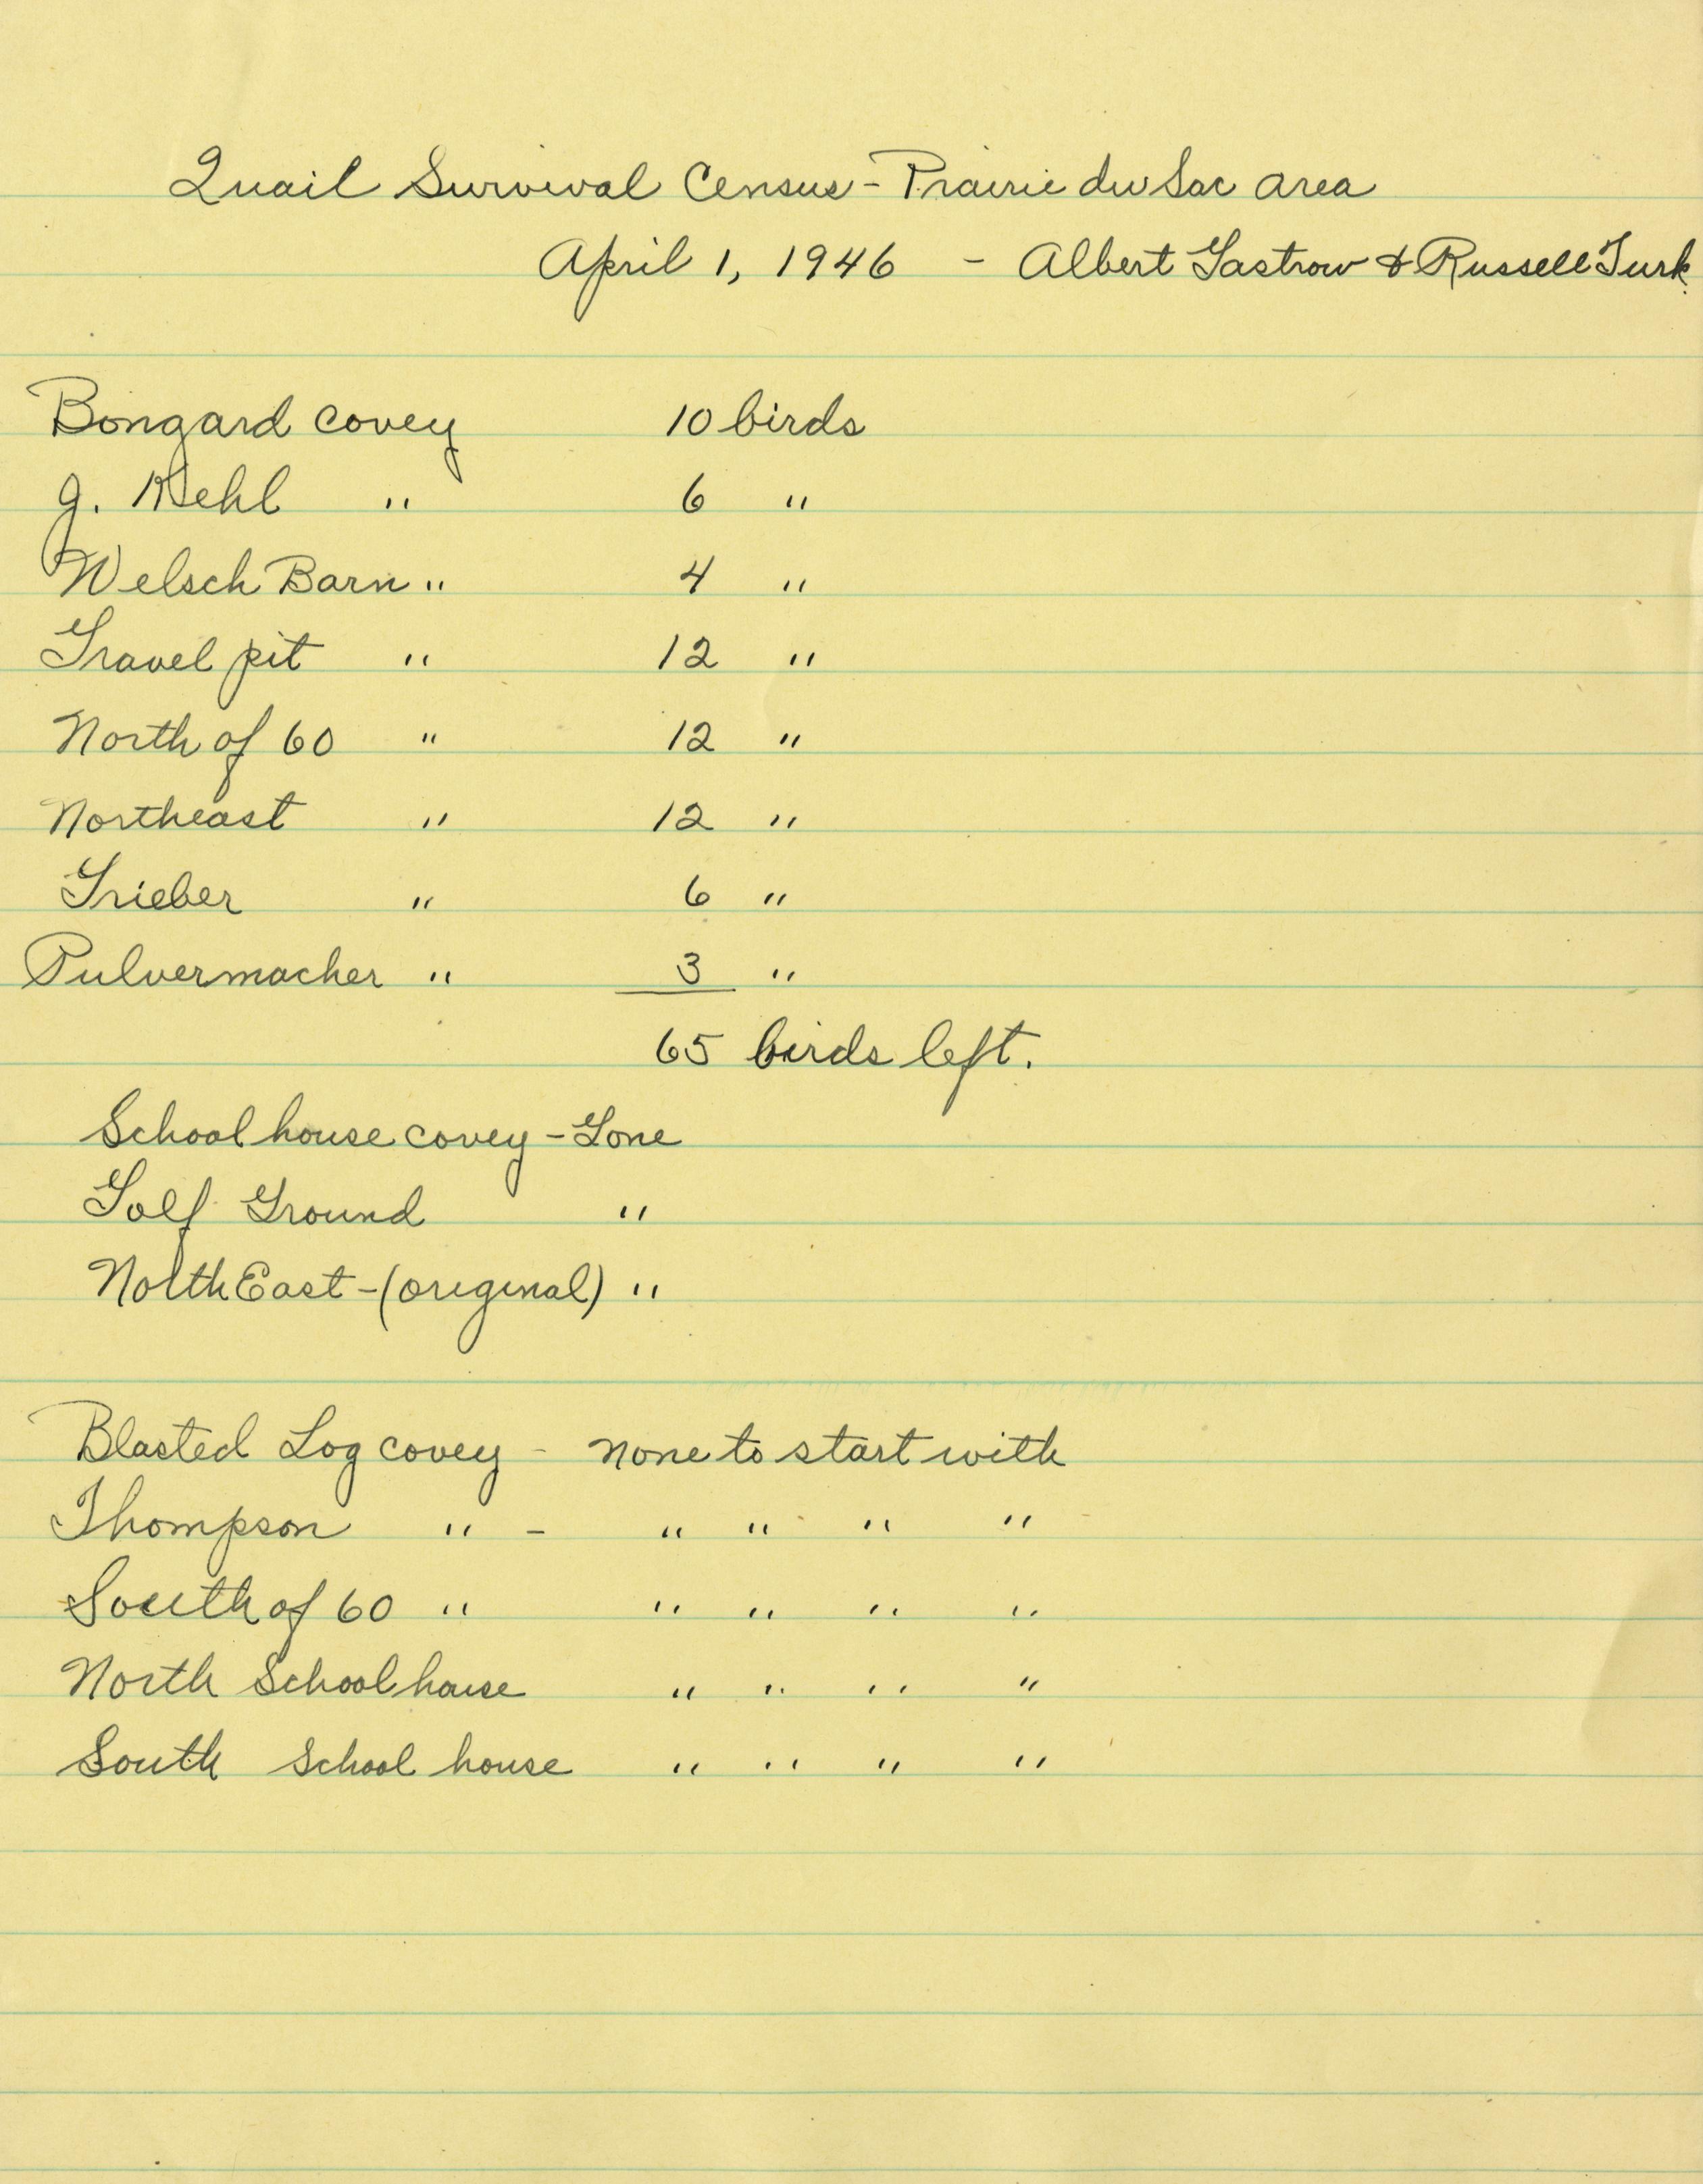 Quail Survival Census - Prairie du Sac area
April 1, 1946 - Albert Gastrow & Russell Turk
Bongard covey 10 birds
g. Kehl " 6 "
Welsch Barn " 4 "
Gravel pit " 12 "
North of 60 " 12 "
Northeast " 12 "
Grieber " 6 "
Pulvermacher " 3 "
65 birds left.
School house covey - Gone
Golf Ground "
North East - (original) "
Blasted Log covey - none to start with
Thompson " - " " " "
South of 60 " " " " "
North School house " " " "
South School house " " " "